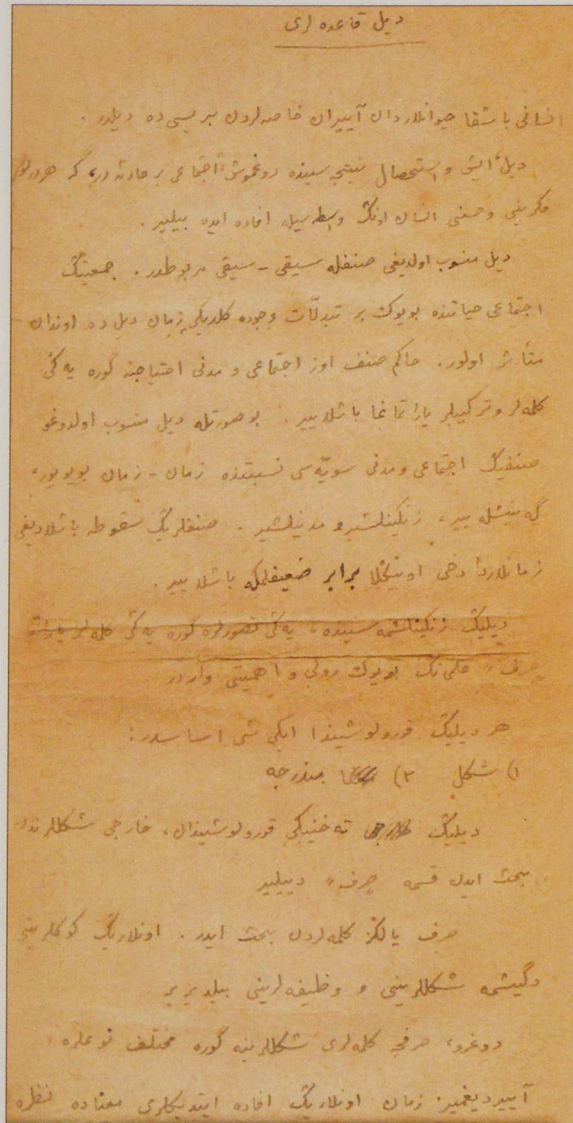 دیل قاعده لری
انسانی باشقا حیوانلاردان آییران خاصه‌لردن بریسی ده دیلدر .
دیل، ایش و استحصال نتیجه سینده دوغموش اجتماعی بر حادثه در، که هر دورلو
فکرینی و حسنی انسان اونڭ واسطه سیله افاده ایده بیلیر .
دیل منسوب اولدیغی صنفله سیقی - سیقی مربوطدر . جمعیتڭ
اجتماعی حیاتنده بویوك بر تبدلات وجوده کلدیکی زمان دیل ده اوندان
متأثر اولور . حاکم صنف اوز اجتماعی و مدنی احتیاجنه گوره یه ڭی
کلمه لر و ترکیبلر یاراتماغا باشلاییر . بو صورتله دیل منسوب اولدوغو
صنفیڭ اجتماعی و مدنی سویّه سی نسبتنده زمان - زمان بویویور،
گه نیشله ییر، زنگینلشیر و مدنیلشیر . صنفلریڭ سقوطه باشلادیغی
زمانلاردا دخی اونیڭلا برابر ضعیفلمکه باشلاییر .
دیلیڭ زنگینلشمه سینده، یه ڭی تصورلره گوره یه ڭی کلمه لر
صرف، علمی نڭ بویوك رولی و اهمیتی واردر
هر دیلیڭ قورولوشیندا ایکی شی اساسدر :
۱) شکل ۲) مندرجه
دیلیڭ ته خنیکی قورولوشیندان، خارجی شکللرندن
بحث ایدن قسمه صرف، دییلیر
صرف یالڭز کلمه لردن بحث ایدر . اونلاریڭ کوکلرینی
دگیشمه شکللرینی و وظیفه لرینی بیلدیریر
دوغرو، صرفچه کلمه لری شکللرینه گوره مختلف نوعلره
آییردیغمیز زمان اونلاریڭ افاده ایتدیکلری معناده نظره